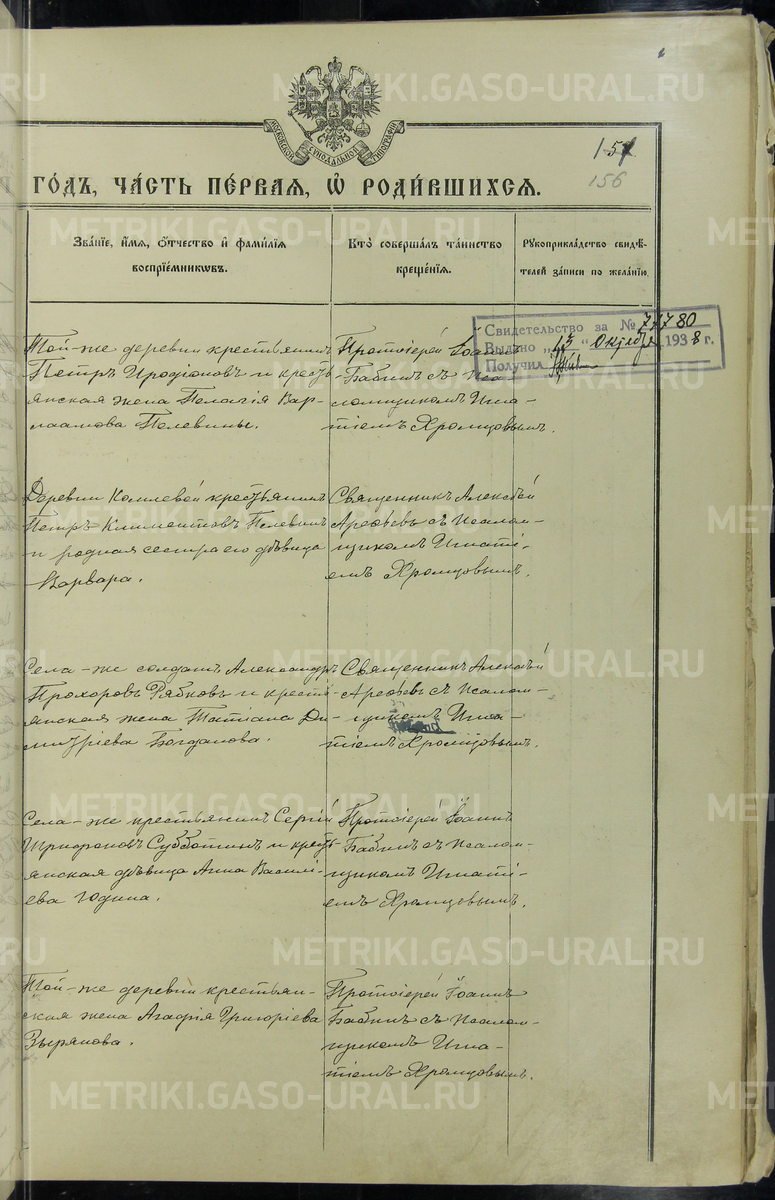 МОСКОВСКОЙ СѴНОДАЛЬНОЙ ТИПОГРАФІИ
156
ГО́ДЪ, ЧА́СТЬ ПЕ́РВАЯ, Ѡ҆ РОДИ́ВШИХСѦ.
ЗВА́НІЕ, И҆́МЯ, О҆́ТЧЕСТВО И҆ ФАМИ́ЛІЯ
ВОСПРІЕ́МНИКѠВЪ.
КТО̀ СОВЕРША́ЛЪ ТА́ИНСТВО
КРЕЩЕ́НІЯ.
РУКОПРИКЛА́ДСТВО СВИДѢ́-
ТЕЛЕЙ ЗА́ПИСИ ПО ЖЕЛА́НІЮ.
Свидетельство за №
Выдано " " Октября 1938 г.
Получил
Той-же деревни крестьянинъ
Петръ Иродіоновъ и кресть
янская жена Пелагія Вар-
лаамова Пелевины.
Протоіерей Іоаннъ
Бабинъ съ Пса
ломщикомъ Игна-
тіемъ Хромцовымъ.
Деревни Комлевой крестьянинъ
Петръ Климентовъ Пелевинъ
и родная сестра его дѣвица
Варвара.
Священникъ Алексѣй
Арефьевъ съ Псалом-
щикомъ Игнаті-
емъ Хромцовымъ.
Села-же солдатъ Александръ
Прохоровъ Рябковъ и кресть
янская жена Татіана Ди-
митріева Богданова.
Священникъ Алексѣй
Арефьевъ съ Псалом-
щикомъ Игна-
тіемъ Хромцовымъ.
Села-же крестьянинъ Сергій
Субботинъ и кресть
янская дѣвица Анна Василі-
ева
Протоіерей Іоаннъ
Бабинъ съ Псалом-
щикомъ Игнаті-
емъ Хромцовымъ.
Той-же деревни крестьян-
ская жена Агафія Григоріева
Зырянова.
Протоіерей Іоаннъ
Бабинъ съ Псалом-
щикомъ Игна-
тіемъ Хромцовымъ.
METRIKI.GASO-URAL.RU